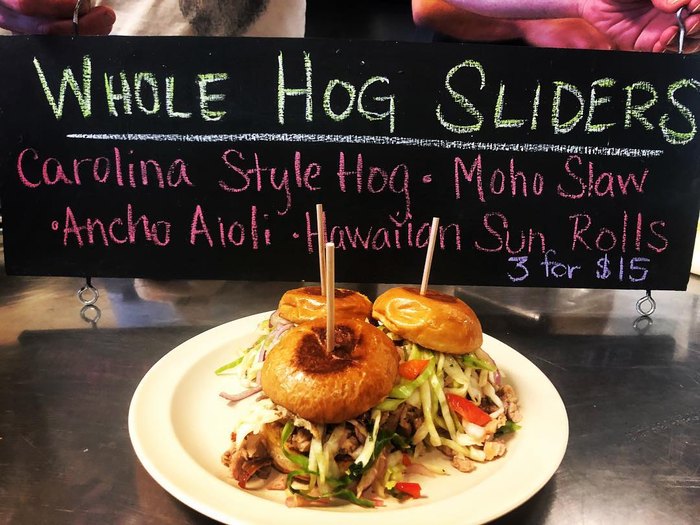 WHOLE HOG SLIDERS
Carolina Style Hog · Moho Slaw
· Ancho Aioli · Hawaiian Sun Rolls
3 for $15